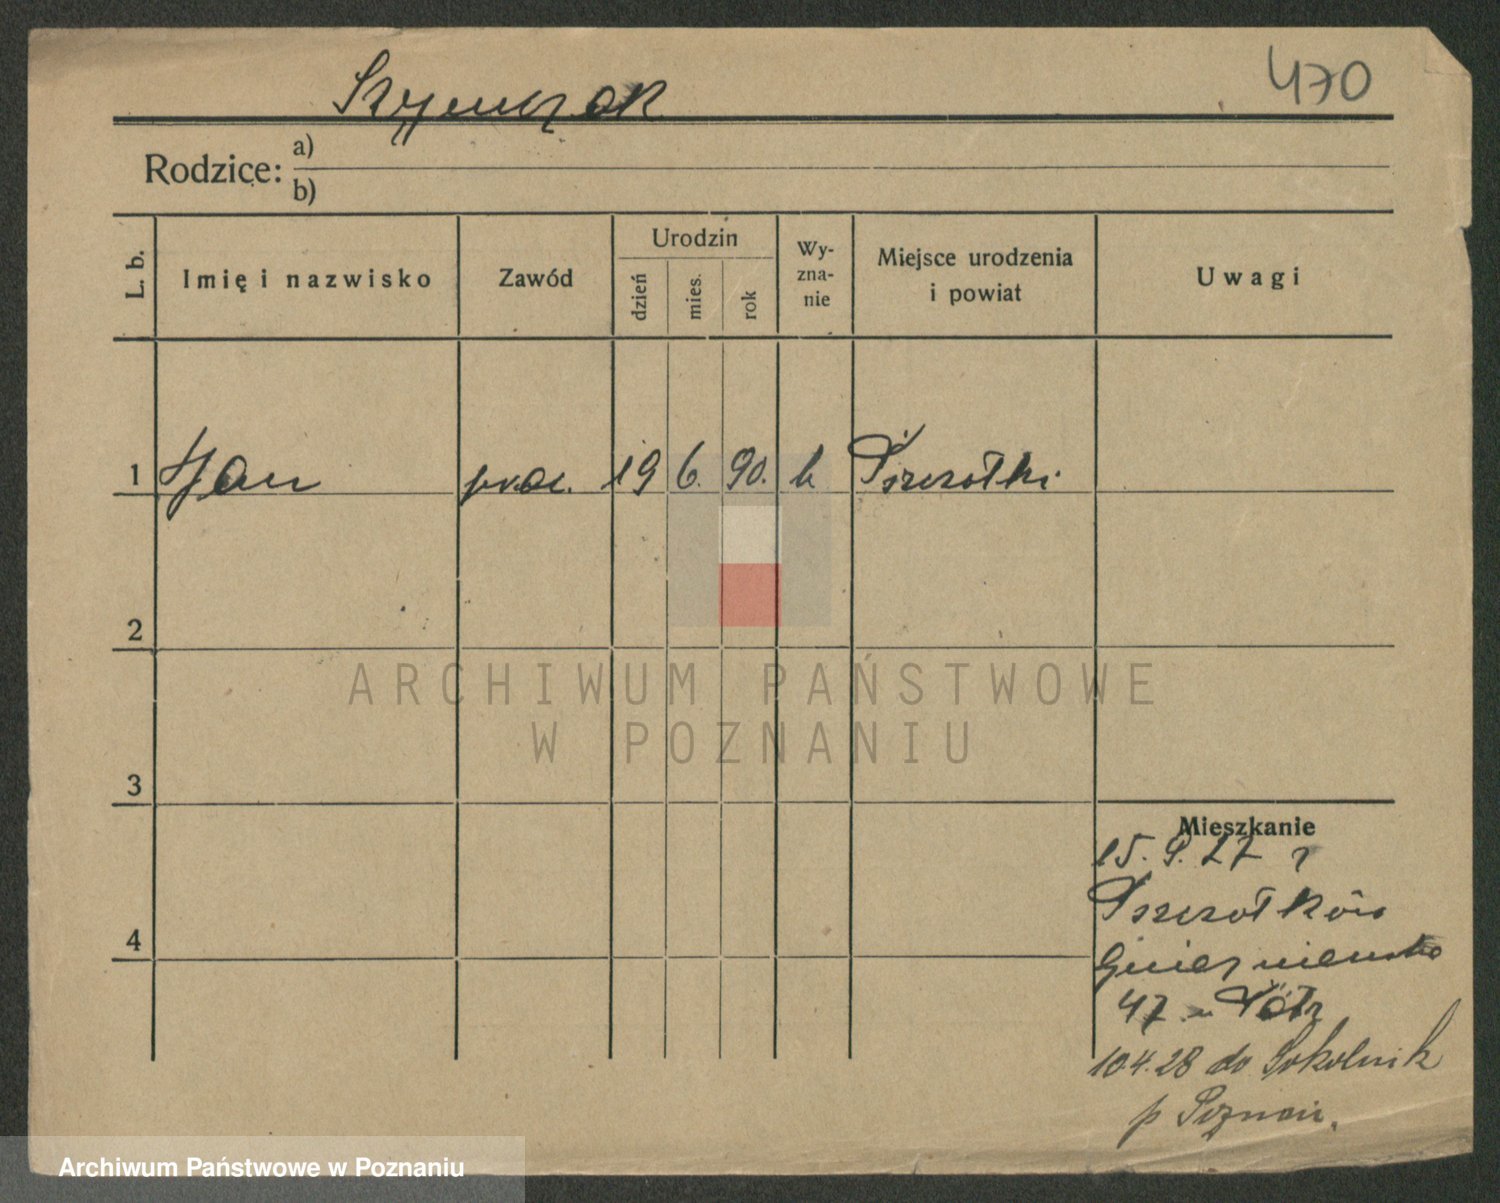 Szymczak
470
Rodzice: a)
b)
L. b.
Imię i nazwisko
Zawód
Urodzin
dzień
mies.
rok
Wy-
zna-
nie
Miejsce urodzenia
i powiat
Uwagi
1 Jan prac. 19 6. 90. k
2
3
4
Mieszkanie
15. 9. 27 z
Gnieźnieńska
47
10.4.28 do Sokolnik
p Poznań.
ARCHIWUM PAŃSTWOWE
W POZNANIU
Archiwum Państwowe w Poznaniu